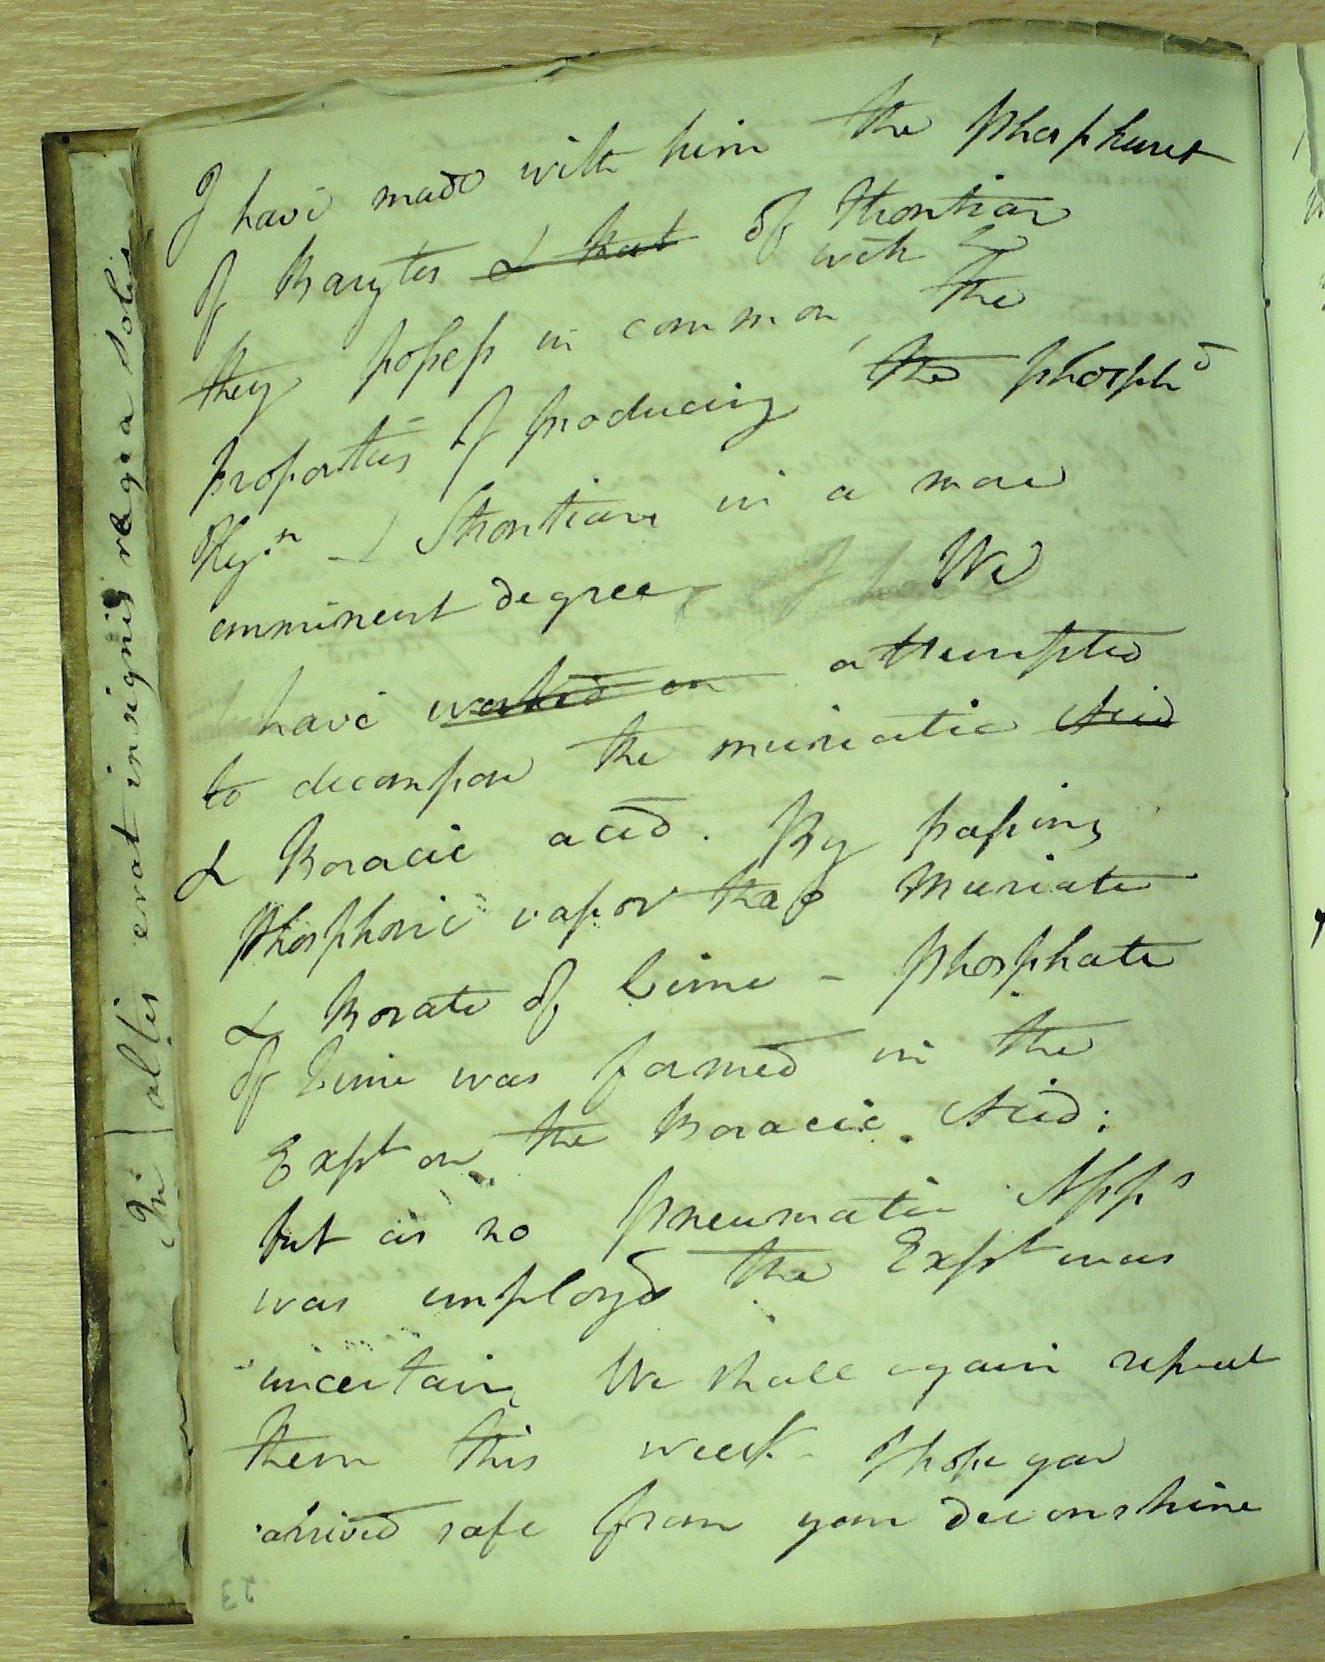 I have made with him the Phosphuret
of Barytes & that of Strontian
with
they possess in common, the
properties of producing the phosphd
Hyn & Strontian in a more
emminent degree We
have worked on attempted
to decompose the muriatic Acid
& Boracic acid. By passing
Phosphoric vapor thro Muriate
& Borate of Lime - Phosphate
of Lime was formed in the
Expt on the Boracic Acid;
but as no pneumatic Apps
was employd the Expt was
uncertain, We shall again repeat
them this week - I hope you
arrived safe from your devonshire
23
altis erat insignis regia solis